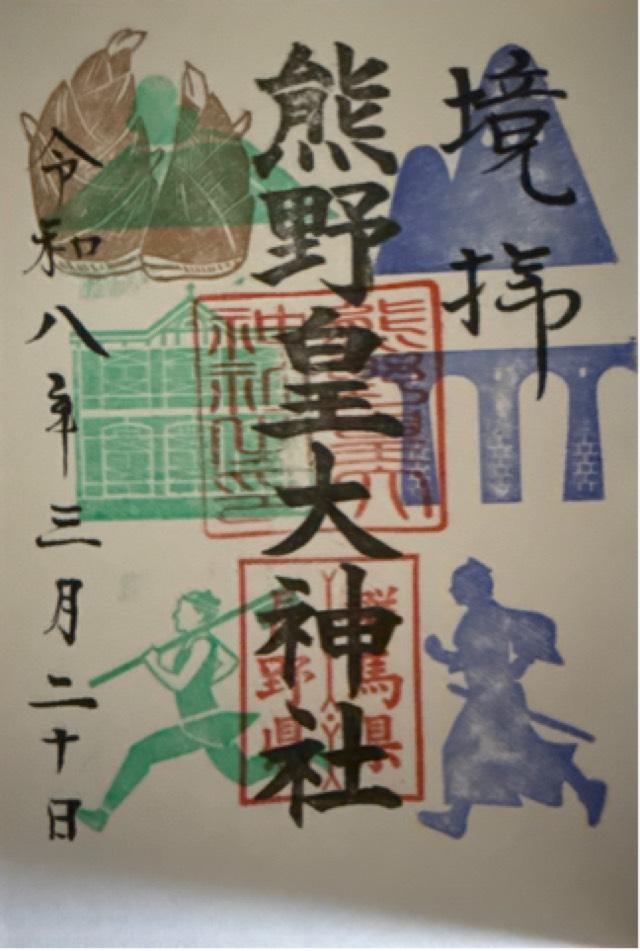 境拝
熊野皇大神社
令和八年三月二十日
熊野皇大
神社之印
群馬県
長野県